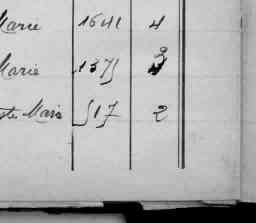 Marie 1641 4
Marie 1375 3
ste Marie 517 2